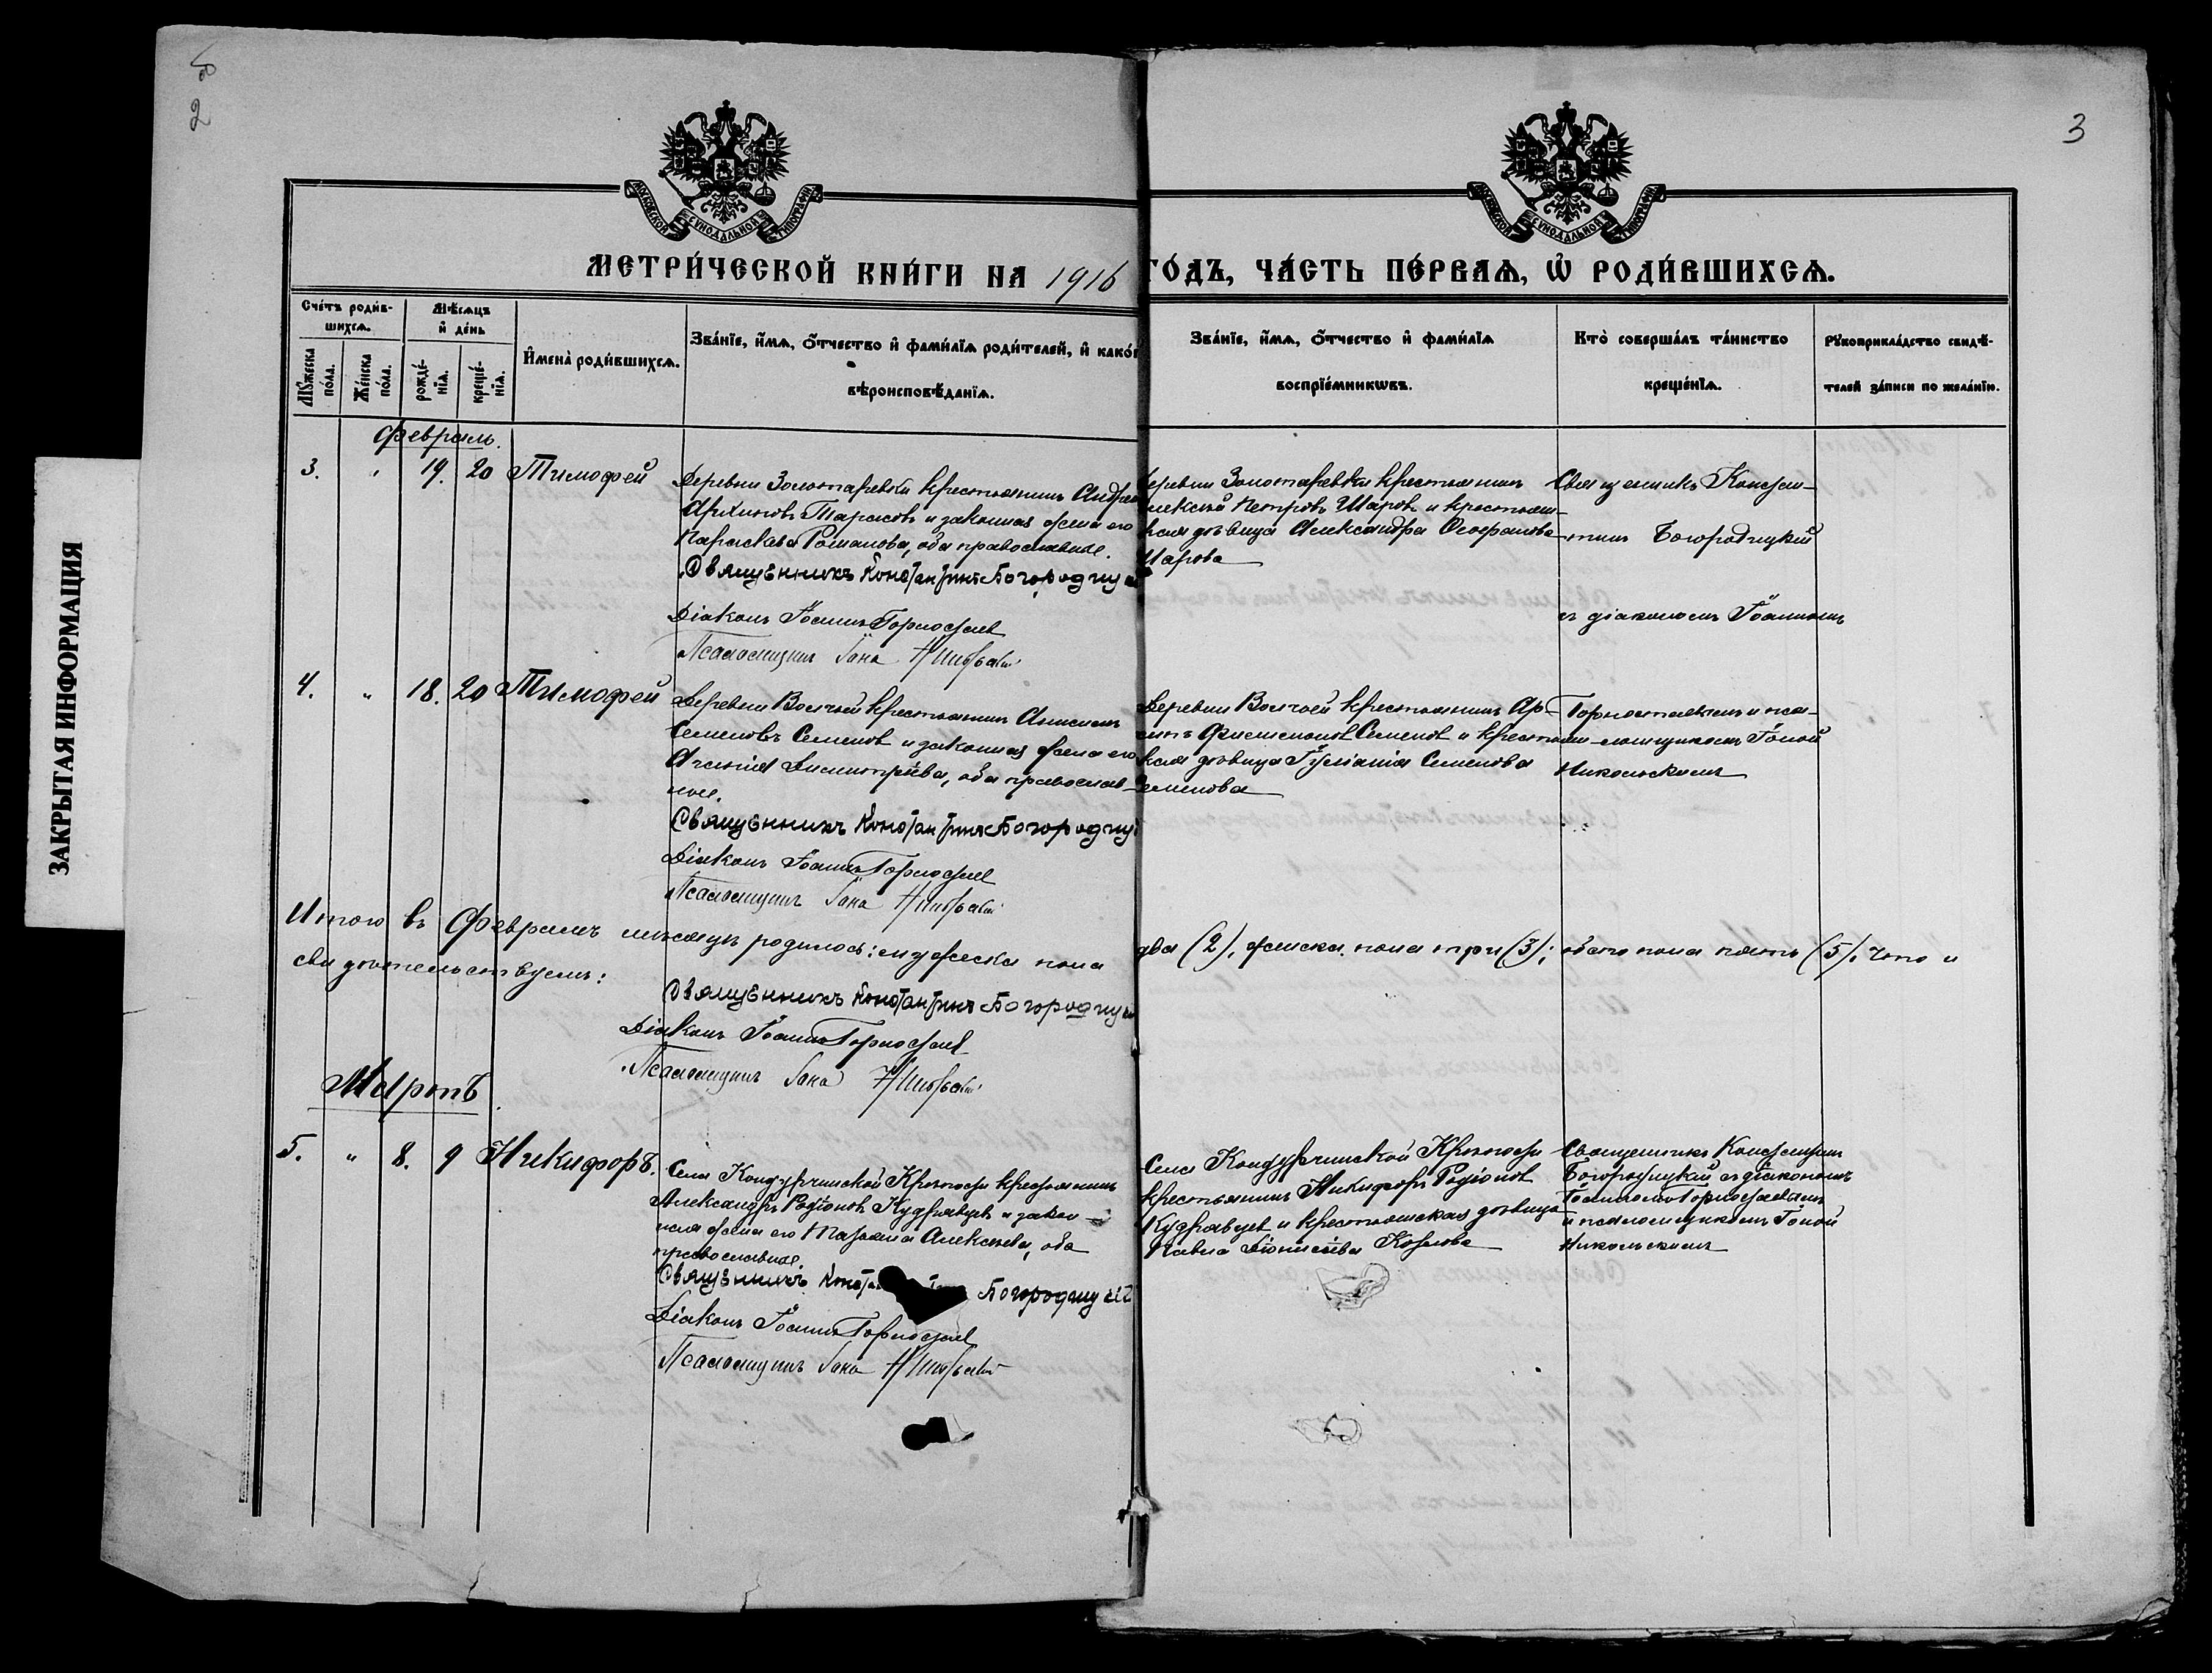 2
3
ЗАКРЫТАЯ ИНФОРМАЦИЯ
МОСКОВСКОЙ СѴНОДАЛЬНОЙ ТИПОГРАФІИ
МОСКОВСКОЙ СѴНОДАЛЬНОЙ ТИПОГРАФІИ
МЕТРИ́ЧЕСКОЙ КНИ́ГИ НА 1916
ГО́ДЪ, ЧА́СТЬ ПЕ́РВАѦ, Ѡ҆ РОДИ́ВШИХСѦ.
Сче́тъ роди́в-
шихсѧ.
Мѣ́сѧцъ
и҆ де́нь
Мꙋ́жеска
по́ла.
Же́нска
по́ла.
рожде́-
нїѧ.
креще́-
нїѧ.
И҆мена̀ роди́вшихсѧ.
Зва́нїе, и҆́мѧ, ѻ҆́тчество и҆ фами́лїѧ роди́телей, и҆ како́г
вѣроисповѣ́данїѧ.
Зва́нїе, и҆́мѧ, ѻ҆́тчество и҆ фами́лїѧ
воспрїе́мникѡвъ.
Кто̀ соверша́лъ та́инство
креще́нїѧ.
Рꙋкоприкла́дство свидѣ́-
телей за́писи по жела́нїю.
Февраль.
3. " 19. 20 Тимофей
Деревни Золотаревки крестьянинъ Андрей
Архиповъ Тарасовъ и законная жена его
Параскева Романова, оба православные.
Священникъ Константинъ Богородицкій
Діаконъ Іоаннъ Горностаев
Псаломщикъ Іона Никольскій
Деревни Золотаревки крестьянинъ
Алексѣй Петровъ Шаровъ и крестьян-
ская дѣвица Александра Ѳеофанова
Шарова
Священникъ Констан-
тинъ Богородицкій
съ діакономъ Іоанномъ
4. " 18. 20 Тимофей
Деревни Волчьей крестьянинъ Анисимъ
Семеновъ Семенов и законная жена его
Димитріева, оба православ-
ные.
Священникъ Константинъ Богородицкій
Діаконъ Іоаннъ Горностаев
Псаломщикъ Іона Никольскій
Деревни Волчьей крестьянинъ
Семенов и крестьян-
ская дѣвица Іуліанія Семенова
Семенова
Горностаевымъ и пса-
ломщикомъ Іоной
Никольскимъ
Итого въ Февралѣ мѣсяцѣ родилось: мужеска пола
два (2), женска пола три (3); обоего пола пять (5). Что и
свидѣтельствуемъ:
Священникъ Константинъ Богородицкій
Діаконъ Іоаннъ Горностаев
Псаломщикъ Іона Никольскій
Мартъ
5. " 8. 9 Никифоръ.
Села Кондурчинской Крѣпости крестьянинъ
Александръ Родіоновъ Кудрявцев и закон-
ная жена его Татьяна Алексѣева, оба
православные.
Священникъ Богородицкій
Діаконъ Іоаннъ Горностаев
Псаломщикъ Іона Никольскій
Села Кондурчинской Крѣпости
крестьянинъ Никифоръ Родіонов
Кудрявцев и крестьянская дѣвица
Павла Діонисіева Козлова
Священникъ Константинъ
Богородицкій съ діакономъ
Іоанномъ Горностаевымъ
и псаломщикомъ Іоной
Никольскимъ